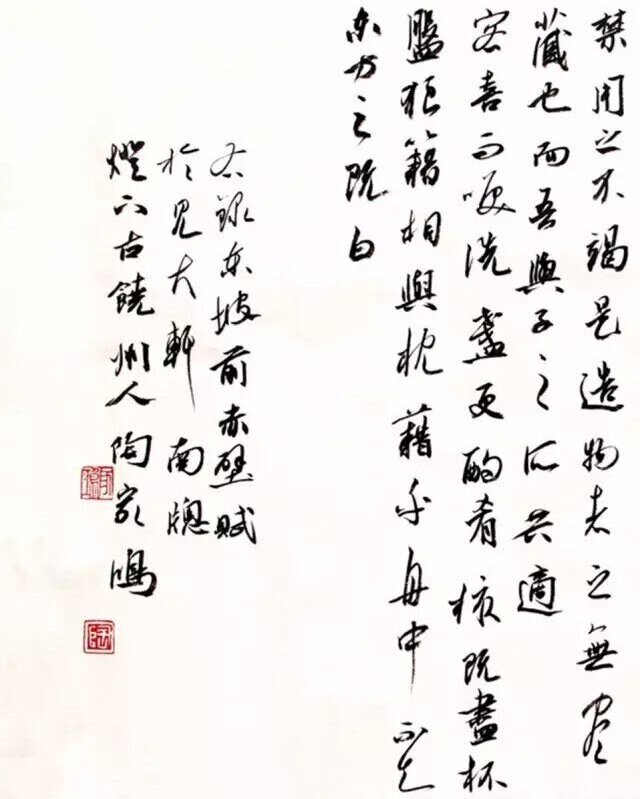 禁用之不竭是造物者之無盡
藏也而吾與子之所共適
客喜而咲洗盞更酌肴核既盡杯
盤狼籍相與枕藉乎舟中不知
東方之既白
右錄東坡前赤壁賦
於見大軒南牕
燈下古饒州人陶家鳴
陶